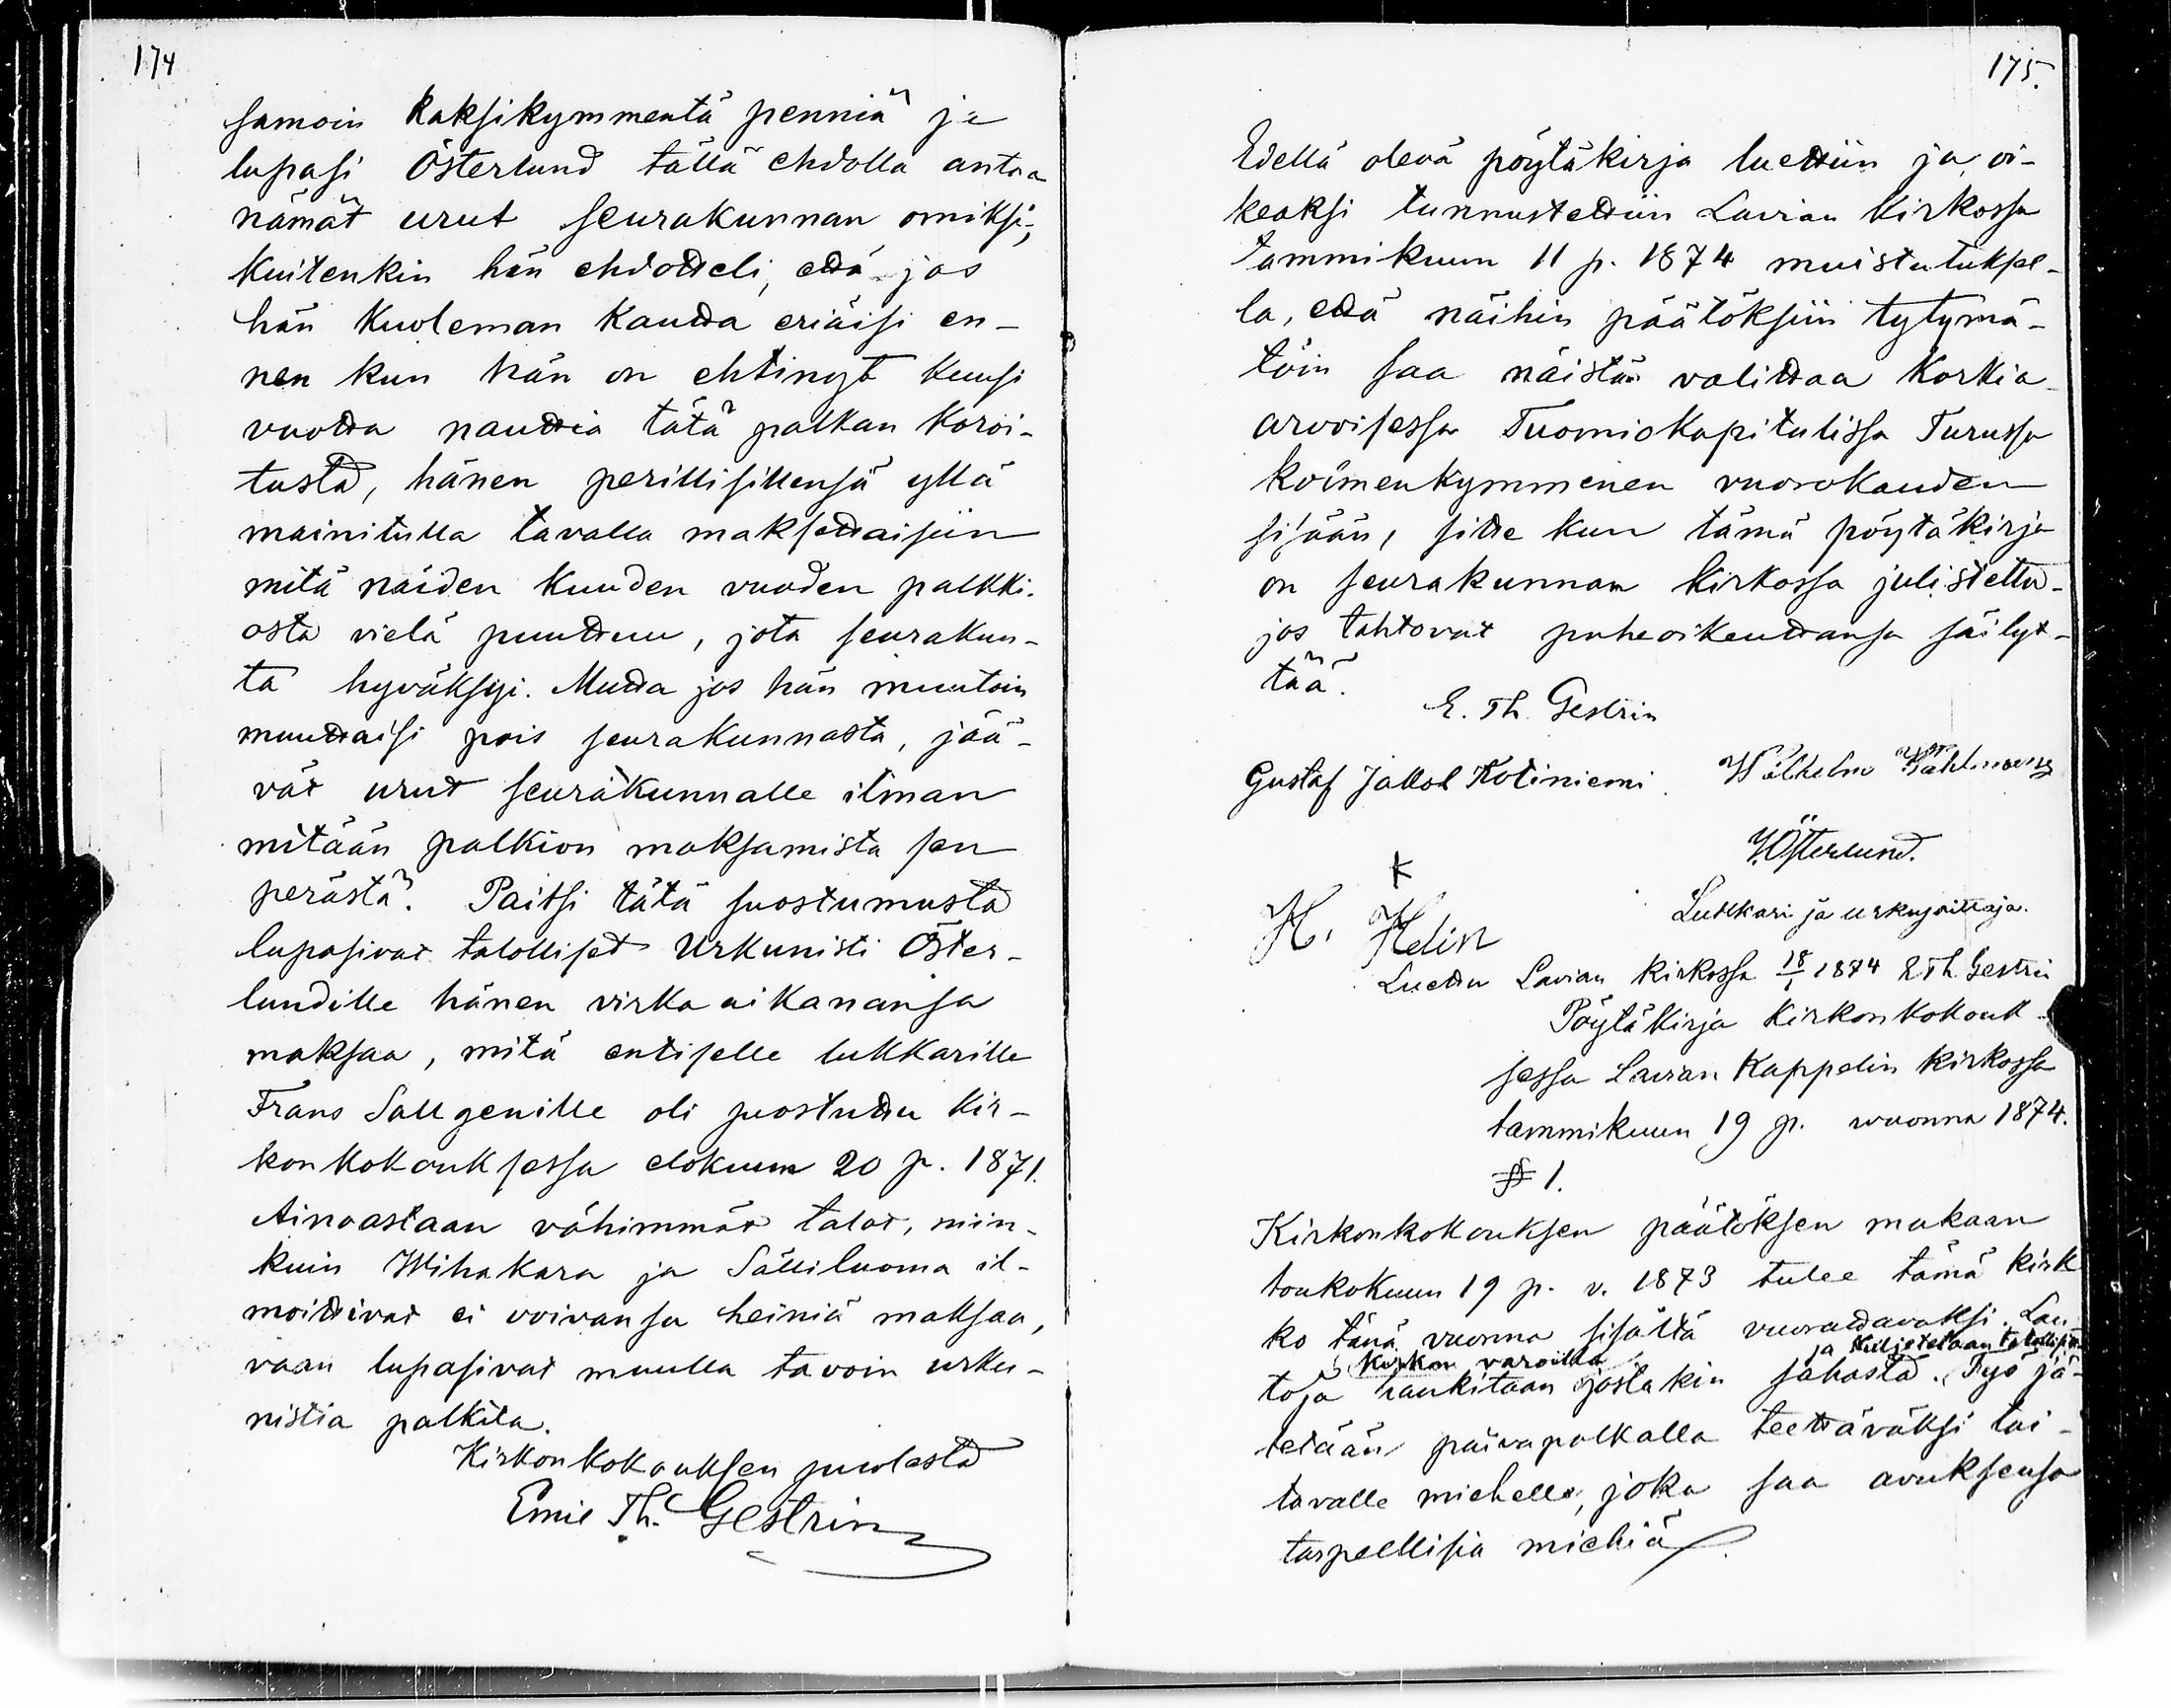 174
samoin kaksikymmentä penniä ja
lupasi Österlund tällä ehdolla antaa
nämät urut seurakunnan omiksi;
kuitenkin hän ehdotteli, että jos
hän kuoleman kautta eriäisi en-
nen kun hän on ehtinyt kuusi
vuotta nauttia tätä palkan koroi-
tusta, hänen perillisillensä yllä
mainitulla tavalla maksettaisiin
mitä näiden kuuden vuoden palkki-
osta vielä puuttuu, jota seurakun-
ta hyväksyi. Mutta jos hän muutoin
muuttaisi pois seurakunnasta, jää-
vät urut seurakunnalle ilman
mitään palkion maksamista sen
perästä. Paitsi tätä suostumusta
lupasivat talolliset Urkunisti Öster-
lundille hänen virka aikanansa
maksaa, mitä entiselle lukkarille
Frans Sallgenille oli suostuttu kir-
konkokouksessa elokuun 20 p. 1871.
Ainoastaan vähimmät talot, niin-
kuin Wihakara ja Sälliluoma il-
moittivat ei voivansa heiniä maksaa,
vaan lupasivat muulla tavoin urku-
nistia palkita.
Kirkonkokouksen puolesta
Emil Th. Gestrin
175.
Edellä oleva pöytäkirja luettiin ja oi-
keaksi tunnustettiin Lavian kirkossa
tammikuun 11 p. 1874 muistutuksel-
la, että näihin päätöksiin tytymä-
töin saa näistä valittaa Korkia
arvoisessa Tuomiokapitulissa Turussa
kolmenkymmenen vuorokauden
sisään, sitte kun tämä pöytäkirja
on seurakunnan kirkossa julistettu-
jos tahtovat puheoikeuttansa säilyt-
tää.
E. Th. Gestrin
Gustaf Jakob Kotiniemi. Wilhelm
Österlund.
Lukkari ja urkujenittaja.
H. Helin
Luettu Lavian kirkossa 18/1 1874 E Th Gestrin
Pöytäkirja kirkonkokouk-
sessa Lavian Kappelin kirkossa
tammikuun 19 p. wuonna 1874.
§ 1.
Kirkonkokouksen päätöksen mukaan
toukokuun 19 p. v. 1873 tulee tämä kirk
ko tänä vuonna sisältä vuorattavaksi. Lau-
kirkon varoilla ja kuljetetaan talollisilta
toja hankitaan jostakin sahasta. Työ jä-
tetään päiväpalkalla teettäväksi tai-
tavalle miehelle, joka saa avuksensa
tarpeellisia miehiä.